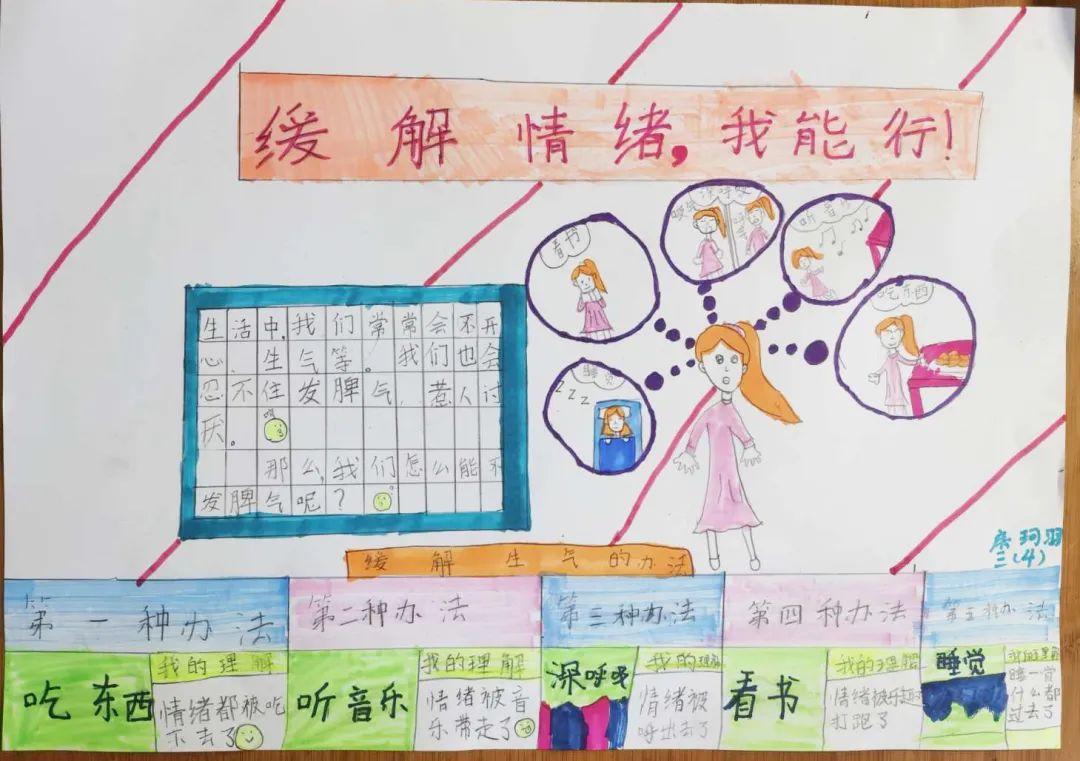 缓解情绪,我能行!
看书
吸气 深呼吸 呼气
听音乐
吃东西
睡觉
zzz
生活中,我们常常会不开
心、生气等。我们也会
忍不住发脾气,惹人讨
厌。
那么,我们怎么能不
发脾气呢?
三(4)
缓解生气的办法
第一种办法
第二种办法
第三种办法
第四种办法
第五种办法
吃东西
我的理解
情绪都被吃
下去了
听音乐
我的理解
情绪被音
乐带走了
深呼吸
我的理解
情绪被
呼出去了
看书
我的理解
情绪被乐趣
打跑了
睡觉
我的理解
睡一觉
什么都
过去了